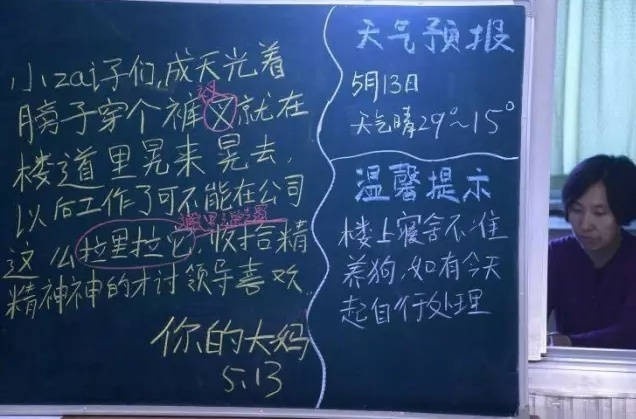 小zai子们,成天光着
衩
膀子穿个裤叉就在
楼道里晃来晃去,
以后工作了可不能在公司
邋里邋遢
这么拉里拉它,收拾精
精神神的才讨领导喜欢
你的大妈
5.13
天气预报
5月13日
天气晴29°~15°
温馨提示
楼上寝舍不准
养狗,如有今天
起自行处理